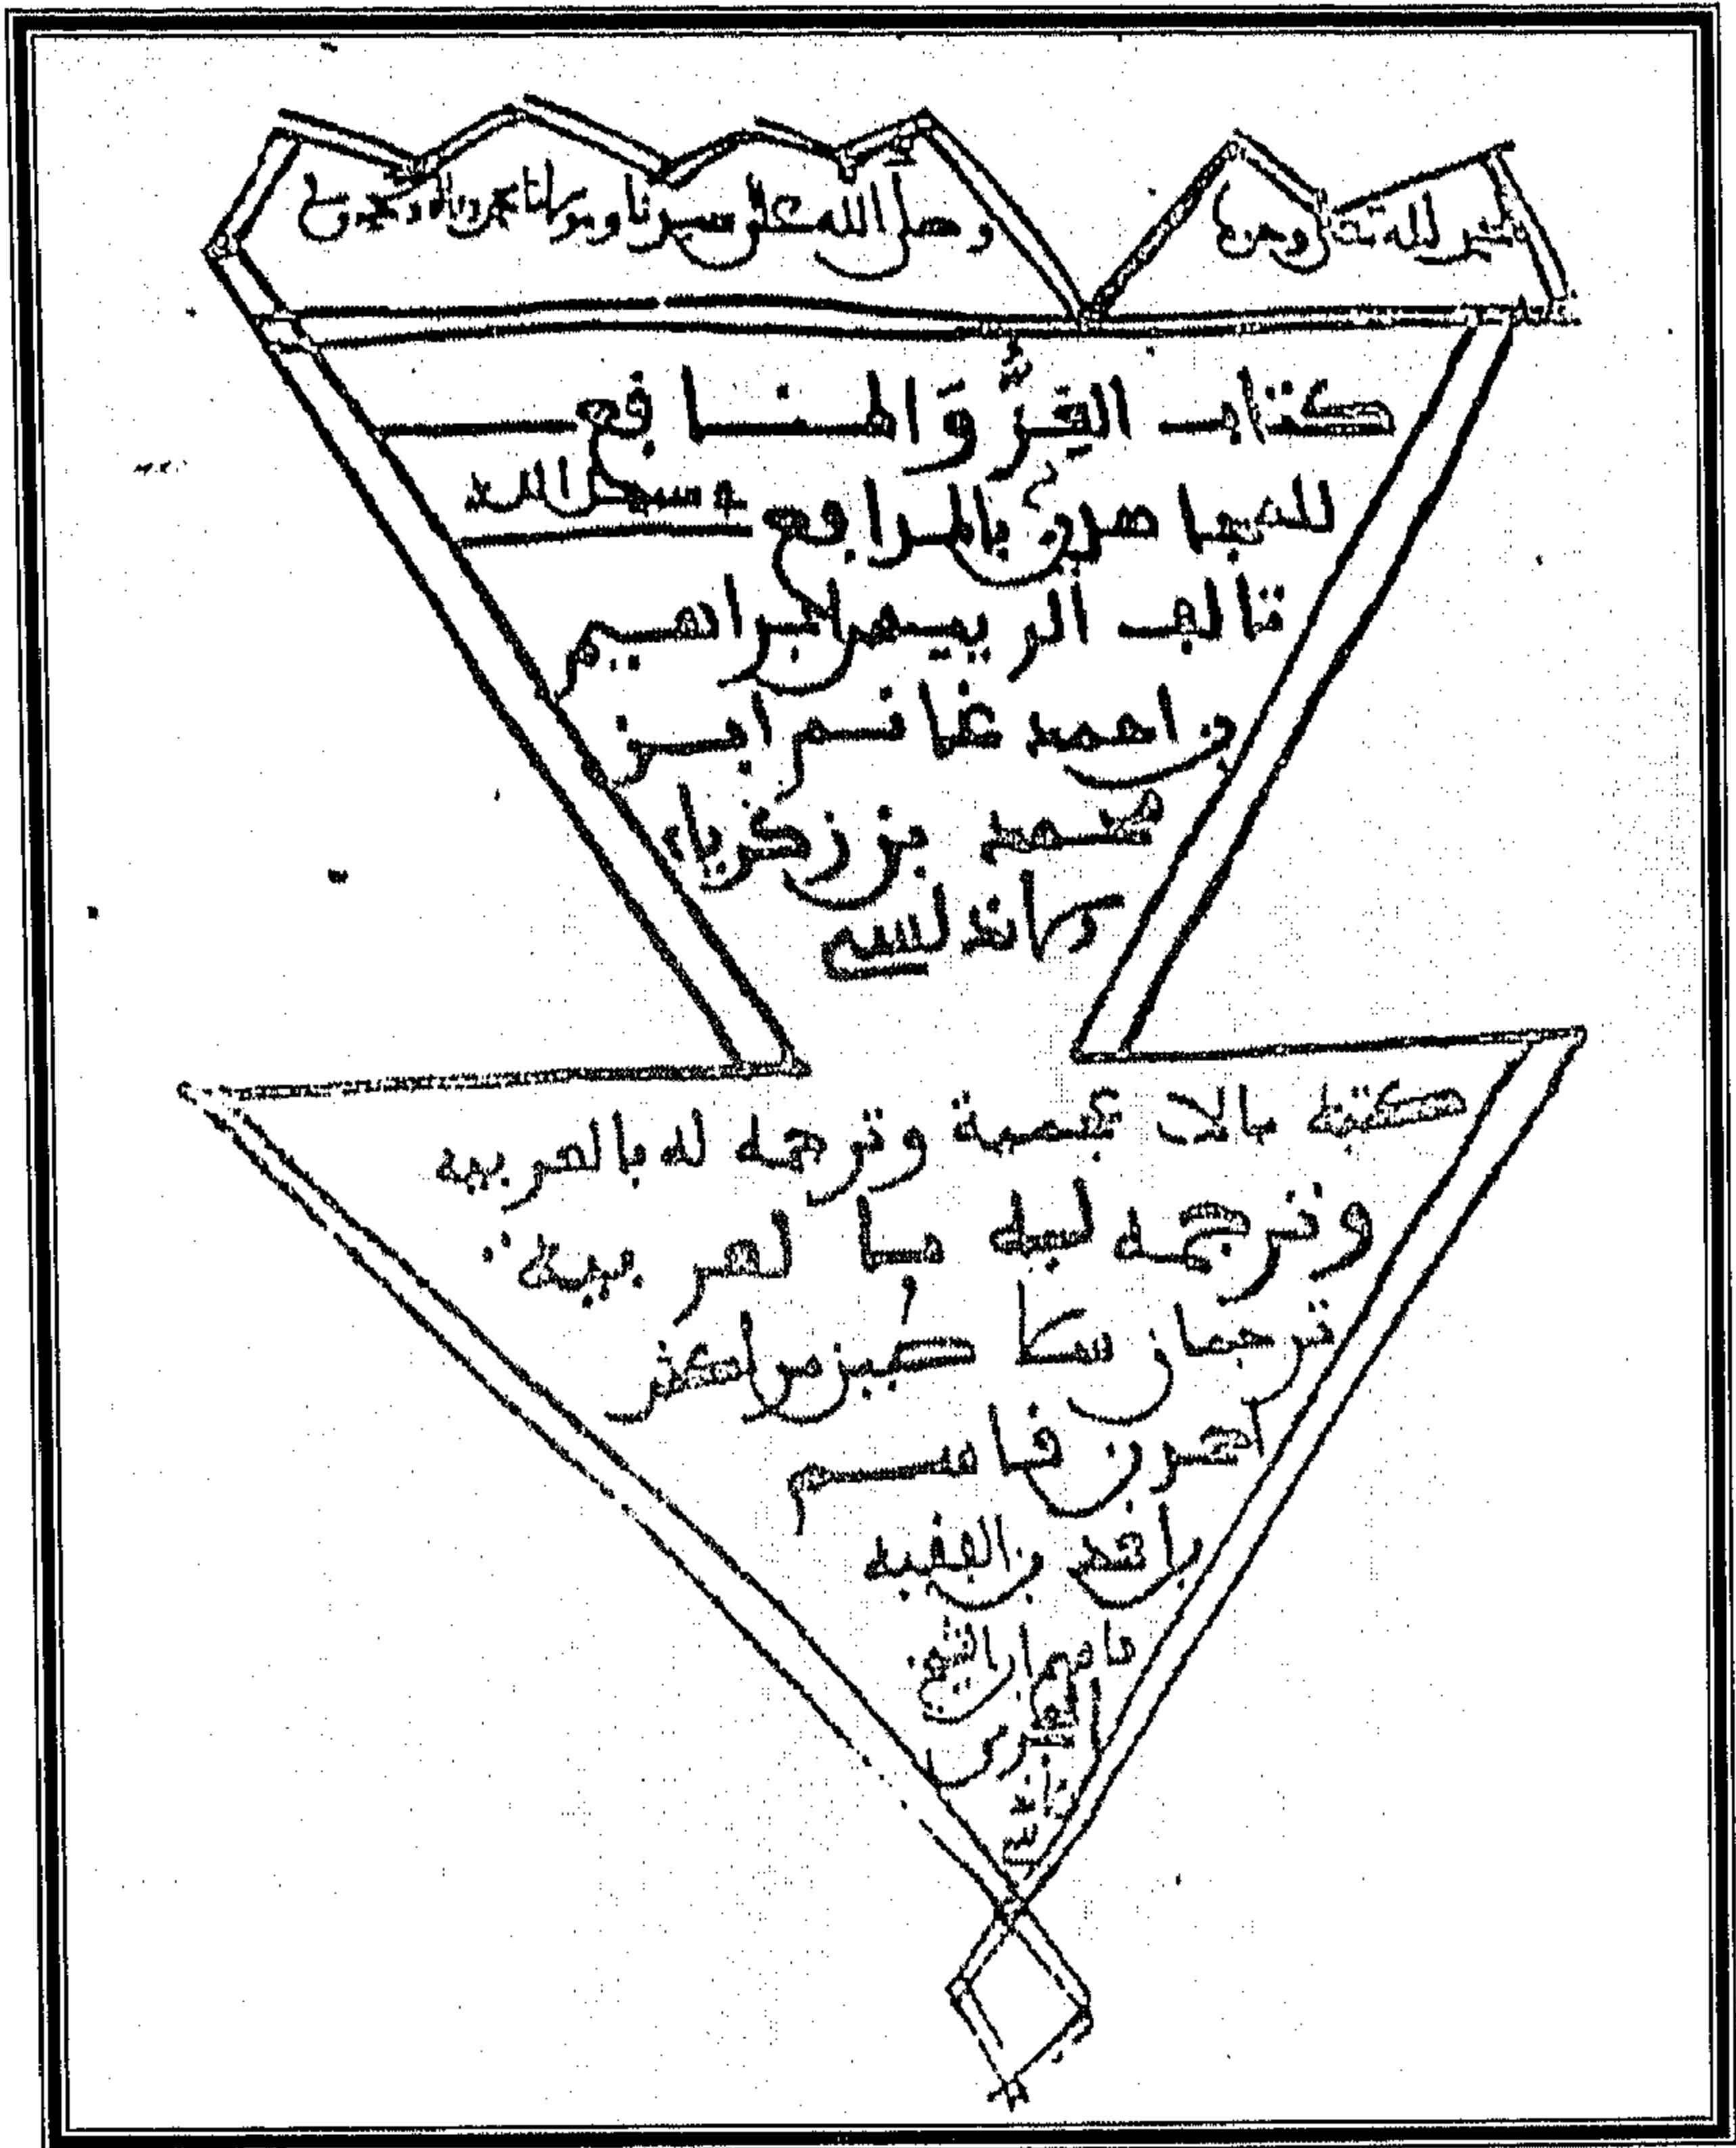 الحمد لله تعالى وحده
وصلى الله على سيدنا ومولانا محمد وءاله وصحبه وسلم
كتاب العِزُّ وَالمنافع
للمجاهدين بالمدافع
تالف الرييس ابراهيم
بن احمد غانم ابن
محمد بن زكرياء
الاندلسي
كتبه بالاعجمية وترجمه له بالعربية
وترجمه ليه بالعربية
ترجمان سلاطين مراكش
احمد بن قاسم
بن احمد بن الفقيه
قاسم ابن الشيخ
الحجري
الاندلسي